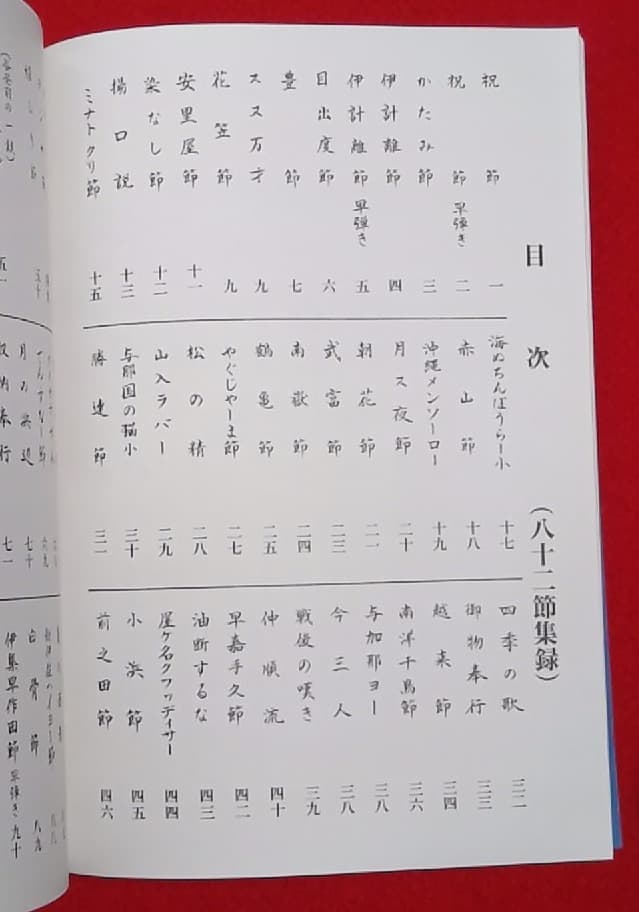 目次（八十二節集録）
祝節 一
祝節 早弾き 二
かたみ節 三
伊計離節 四
伊計離節 早弾き 五
目出度節 六
豊節 七
スス万才 九
花笠節 九
安里屋節 十一
染なし節 十二
揚口説 十三
ミナトクリ節 十五
海ぬちんぼうらー小 十七
赤山節 十八
沖縄メンソーロー 十九
月ス夜節 二十
朝花節 二一
武富節 二三
南嶽節 二四
鶴亀節 二五
やぐじゃーま節 二七
松の精 二八
山入ラバー 二九
与那国の猫小 三十
勝連節 三一
四季の歌 三二
御物奉行 三三
越来節 三四
南洋千鳥節 三六
与加耶ヨー 三八
今三人 三八
戦後の嘆き 三九
仲順流 四十
早嘉手久節 四二
油断するな 四三
屋ヶ名クワッディサー 四四
小浜節 四五
前之田節 四六
月の浜辺 七十
収納奉行 七一
白骨節 八九
伊集早作田節 早弾き 九十